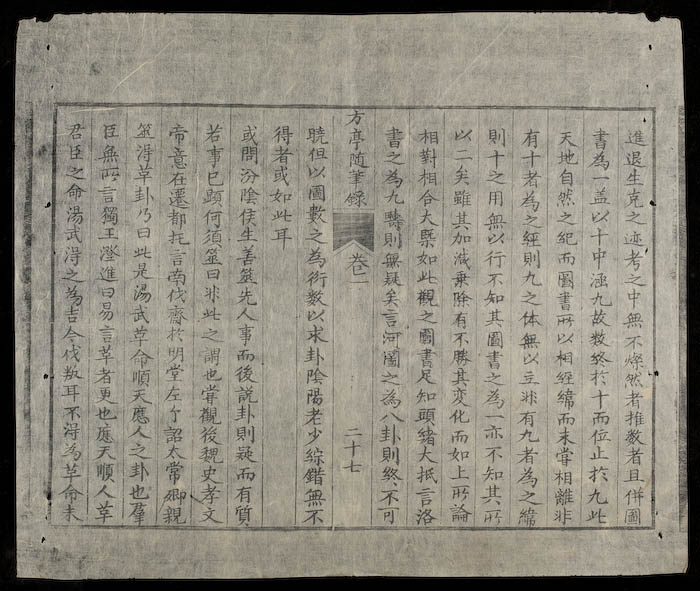 進退生克之迹考之中無不燦然者推数者且併圖
書為一盖以十中涵九故数終於十而位止於九此
天地自然之紀而圖書所以相經緯而未甞相離非
有十者為之經則九之体無以立非有九者為之緯
則十之用無以行不知其圖書之為一亦不知其所
以二矣雖其加减乗除有不勝其変化而如上所論
相對相合大槩如此觀之圖書足知頭緒大抵言洛
書之為九疇則無疑矣言河圖之為八卦則終不可
方亭随筆録 卷二 二十七
曉但以圖數之為衍數以求卦陰陽老少綜錯無不
得者或如此耳
或問汾陰侯生善筮先人事而後説卦則疑而有質
若事已顕何須筮曰非此之謂也甞觀後魏史孝文
帝意在遷都托言南伐齋於明堂左个詔太常卿親
筮淂革卦乃曰此是湯武革命順天應人之卦也羣
臣無所言獨王澄進曰易言革者更也應天順人革
君臣之命湯武淂之為吉今伐叛耳不得為革命未